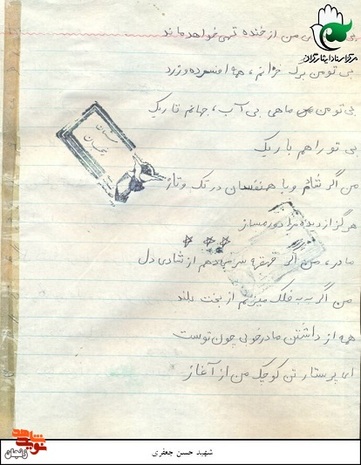 من از خنده تهی خواهد ماند
بی تو من برگ خزانم، همه افسرده و زرد
بی تو من ماهی بی آب، جهانم تاریک
بی تو راهم باریک
من اگر شادم و با همنفسان در تک و تاز
هرگز از دیده مرا دور مساز
مادر، من اگر قهقهه سر میدهم از شادی دل
من اگر به فلک میزنم از بخت بلند
همه از داشتن مادر خوبی چون توست
ای پرستار تن کوچک من از آغاز
نوید شاهد
زنجان
شهید حسن جعفری